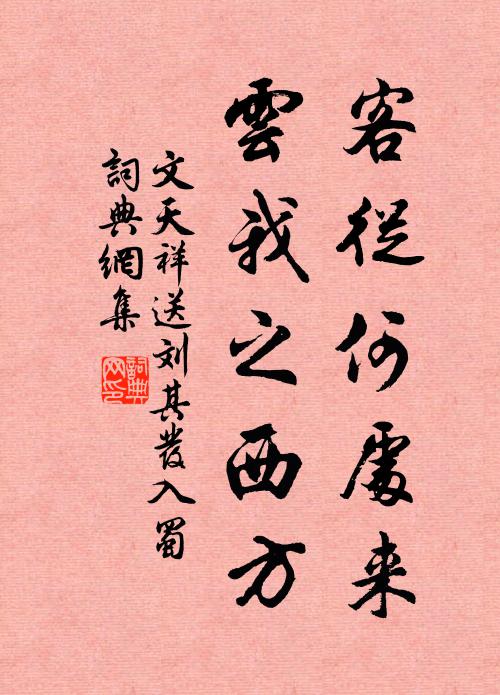 客從何處来
雲我之西方
文天祥送刘其發入蜀
詞典網集
詞典网印